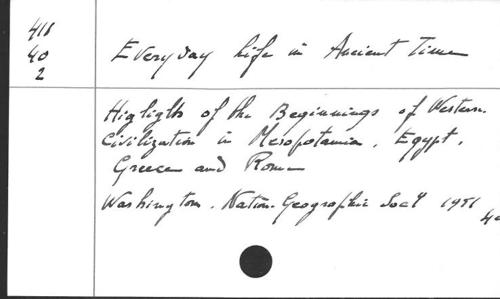 411
40
2
Everyday Life in Ancient Time
Highligths of the Beginnings of Western.
Civilization in Mesopotamia, Egypt,
Greece and Rome
Washington. Nation. Geographic Socy 1951